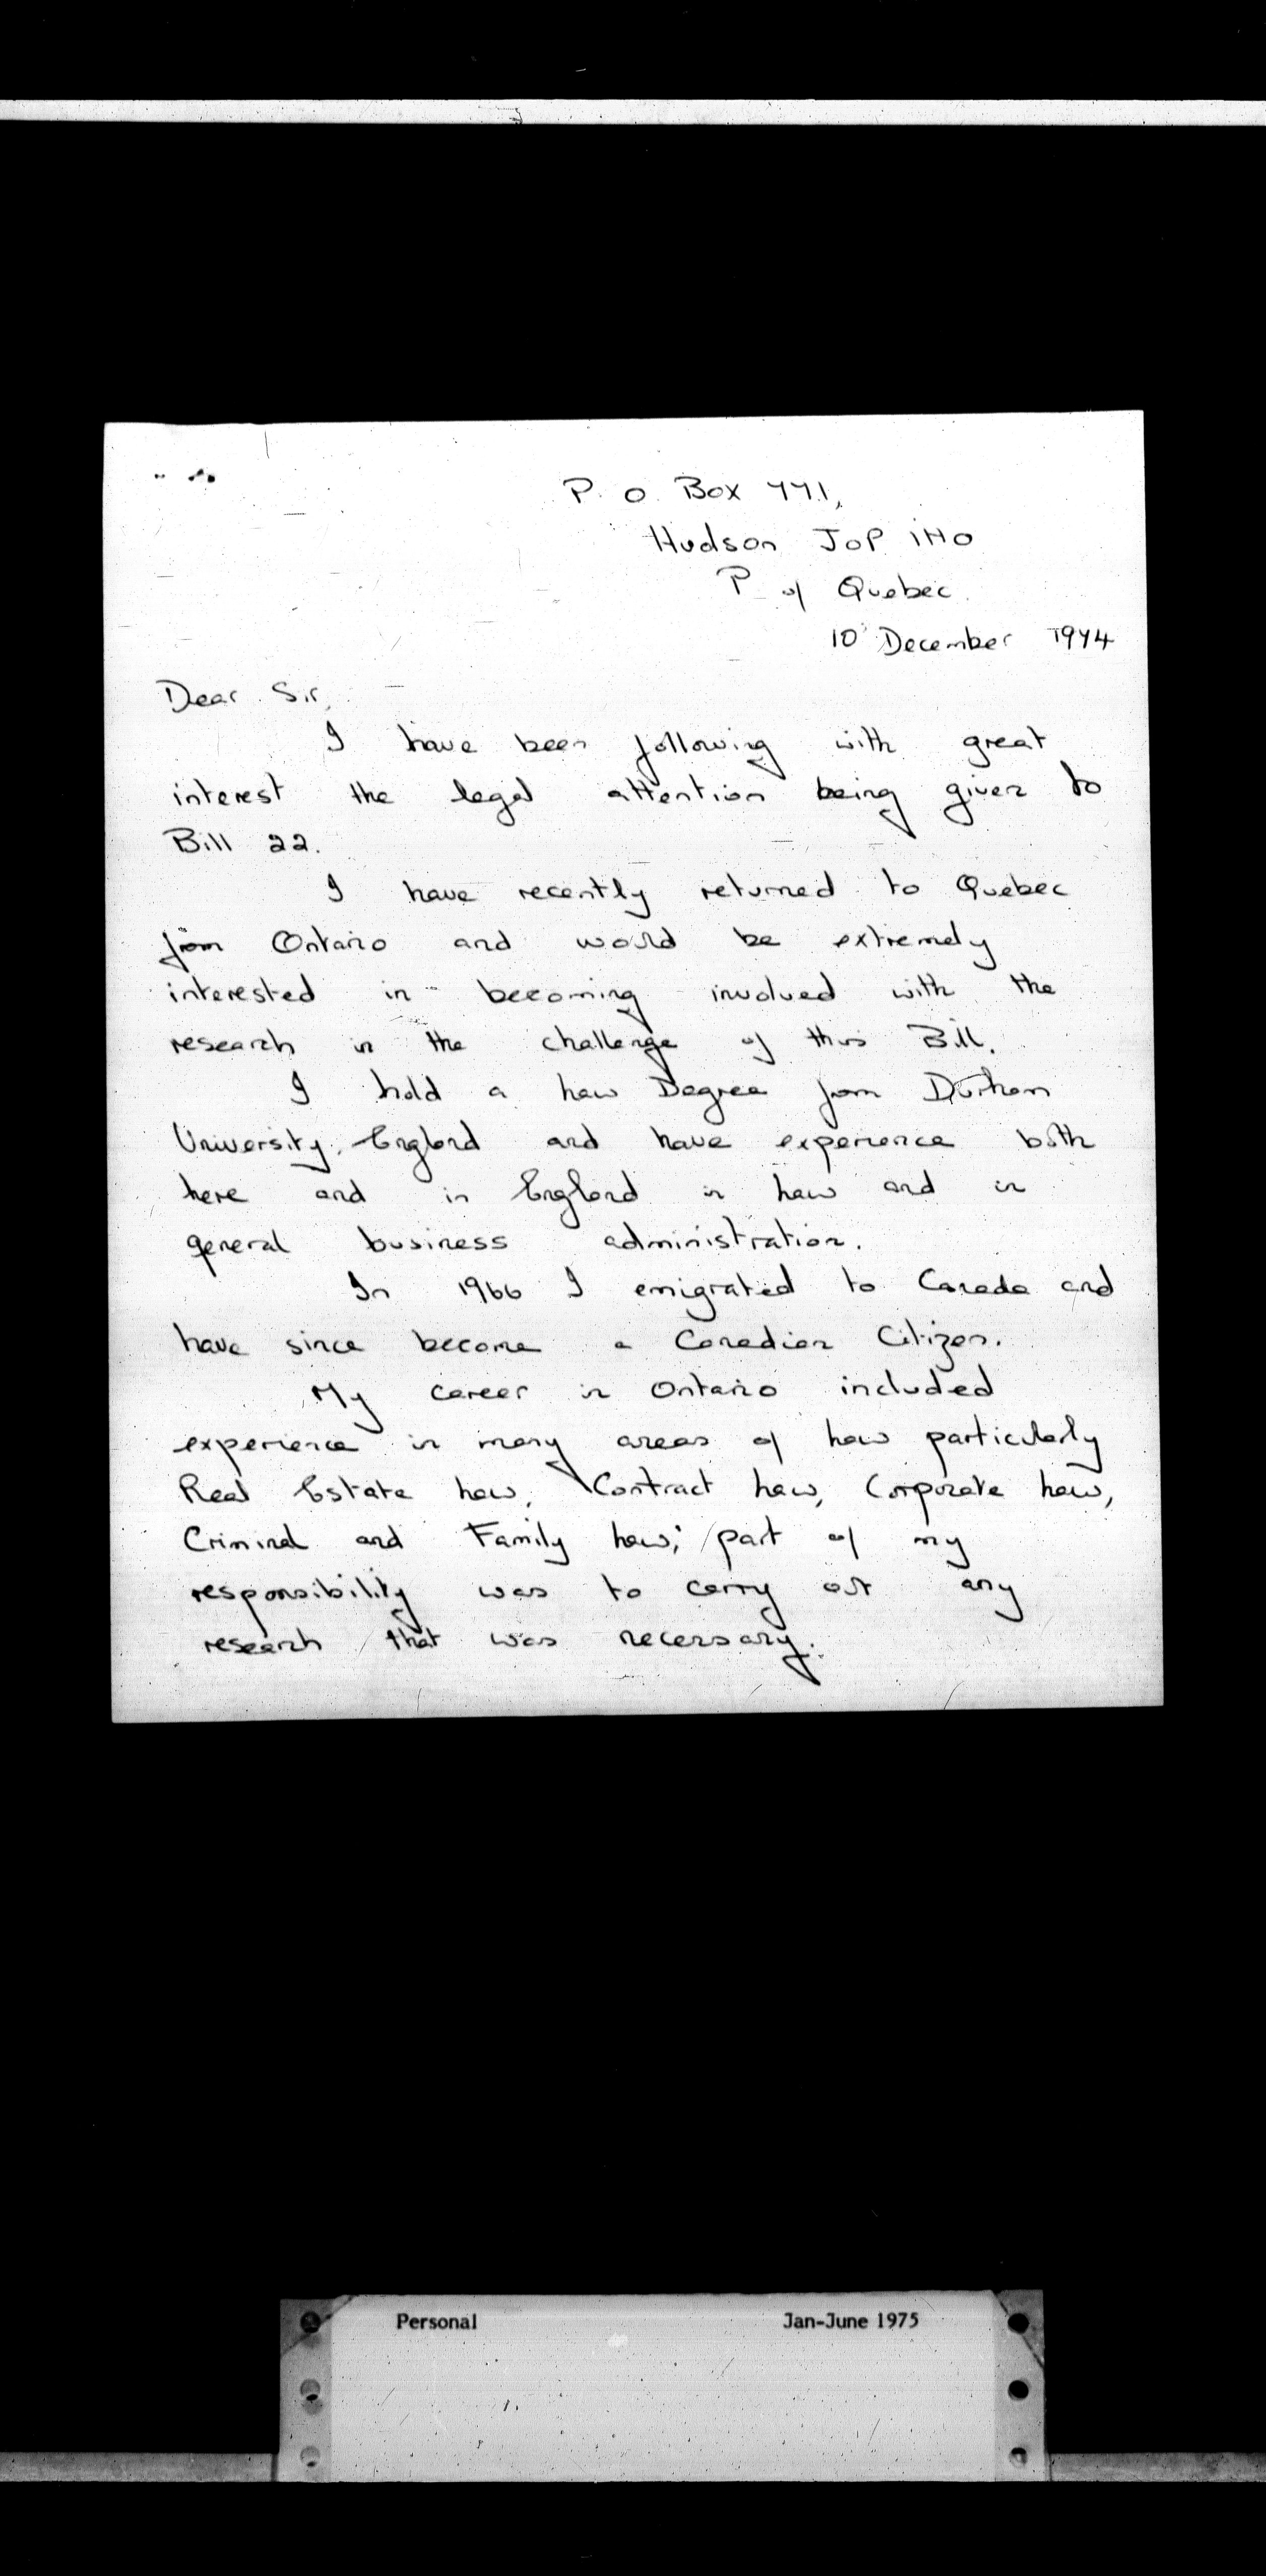 P. O. Box 771,
Hudson JOP 1HO
P. of Quebec.
10 December 1974
Dear Sir,
I have been following with great
interest the legal attention being given to
Bill 22.
I have recently returned to Quebec
from Ontario and would be extremely
interested in becoming involved with the
research in the challenge of this Bill.
I hold a Law Degree from Durham
University, England and have experience both
here and in England in Law and in
general business administration.
In 1966 I emigrated to Canada and
have since become a Canadian Citizen.
My career in Ontario included
experience in many areas of Law particularly
Real Estate Law, Contract Law, Corporate Law,
Criminal and Family Law; part of my
responsibility was to carry out any
research that was necessary.
Personal Jan-June 1975